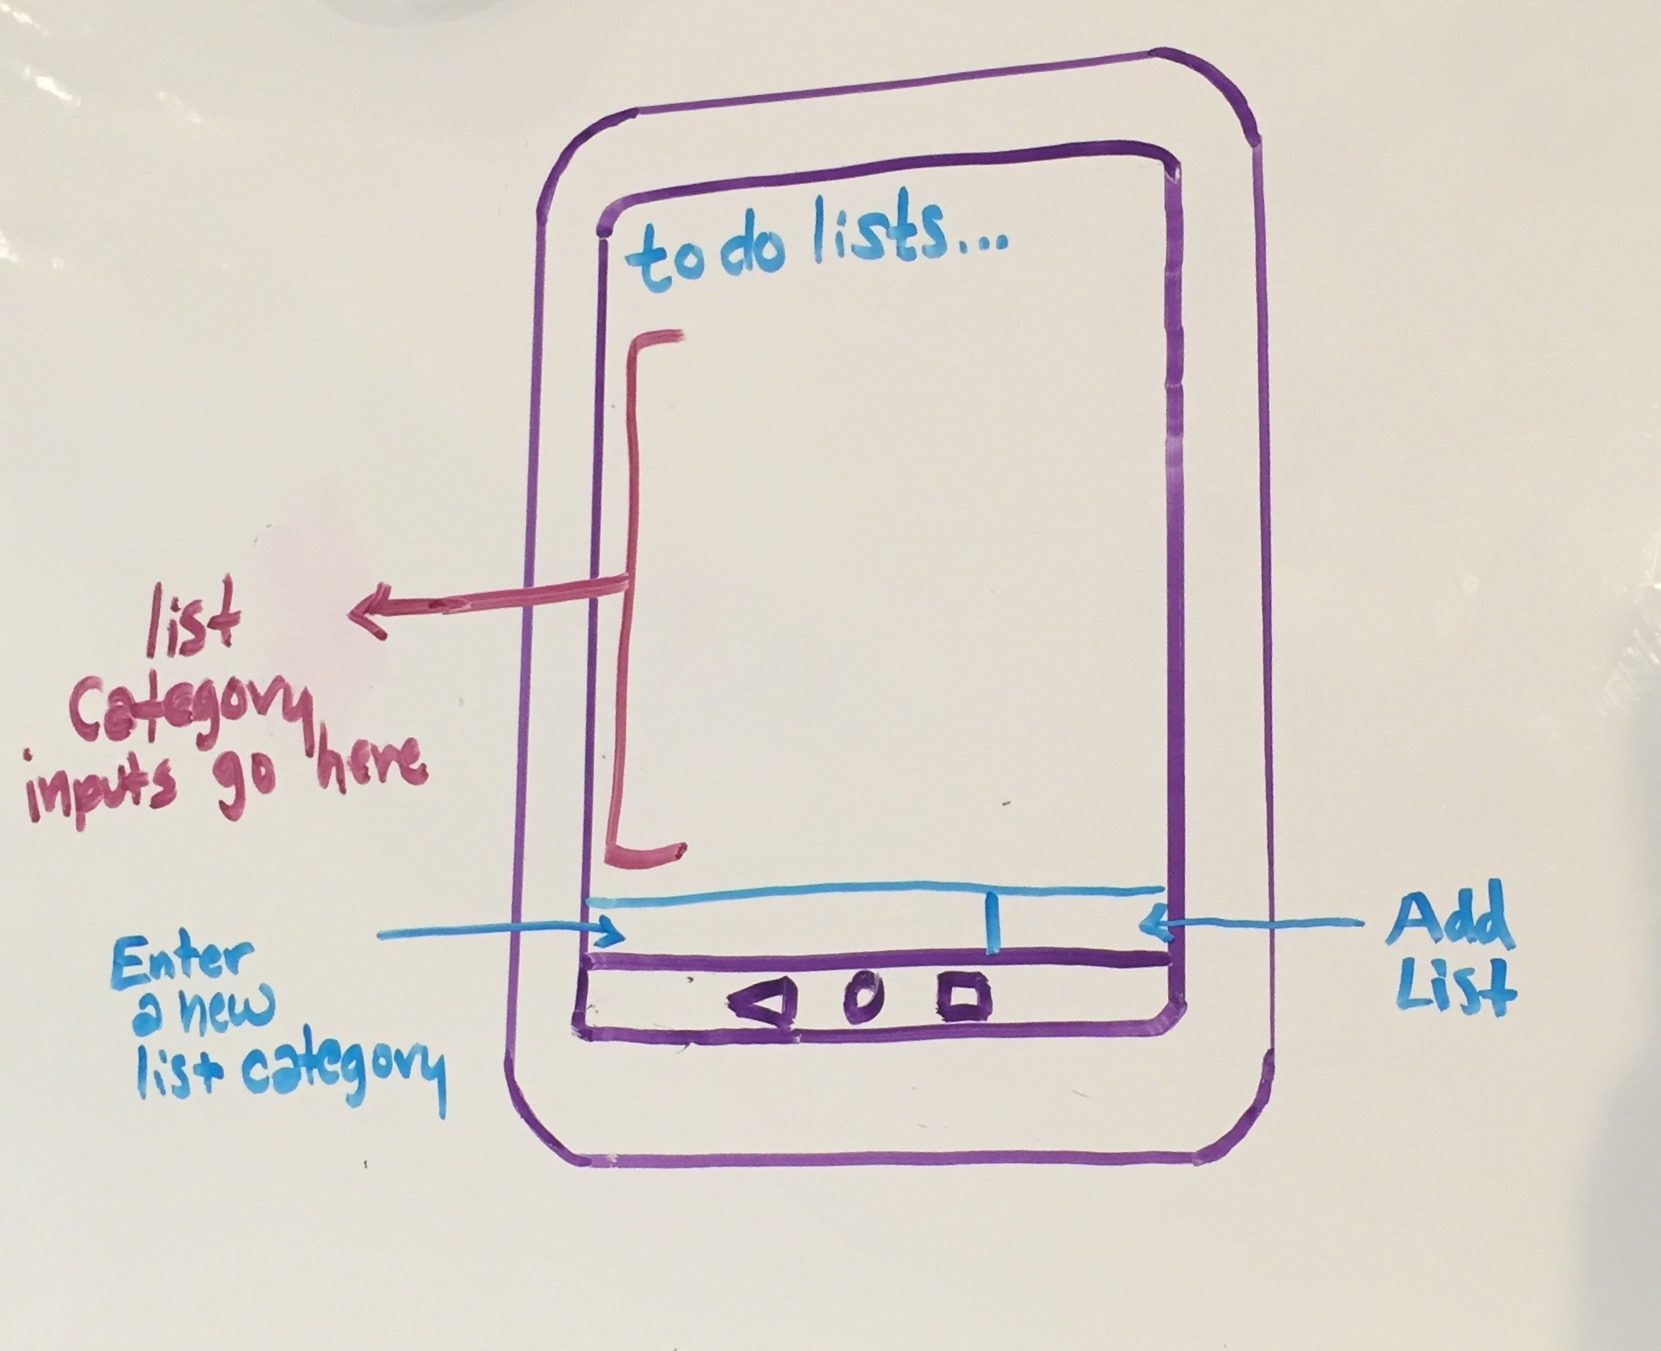 to do lists...
list
Category
inputs go here
Enter
a new
list category
Add
List